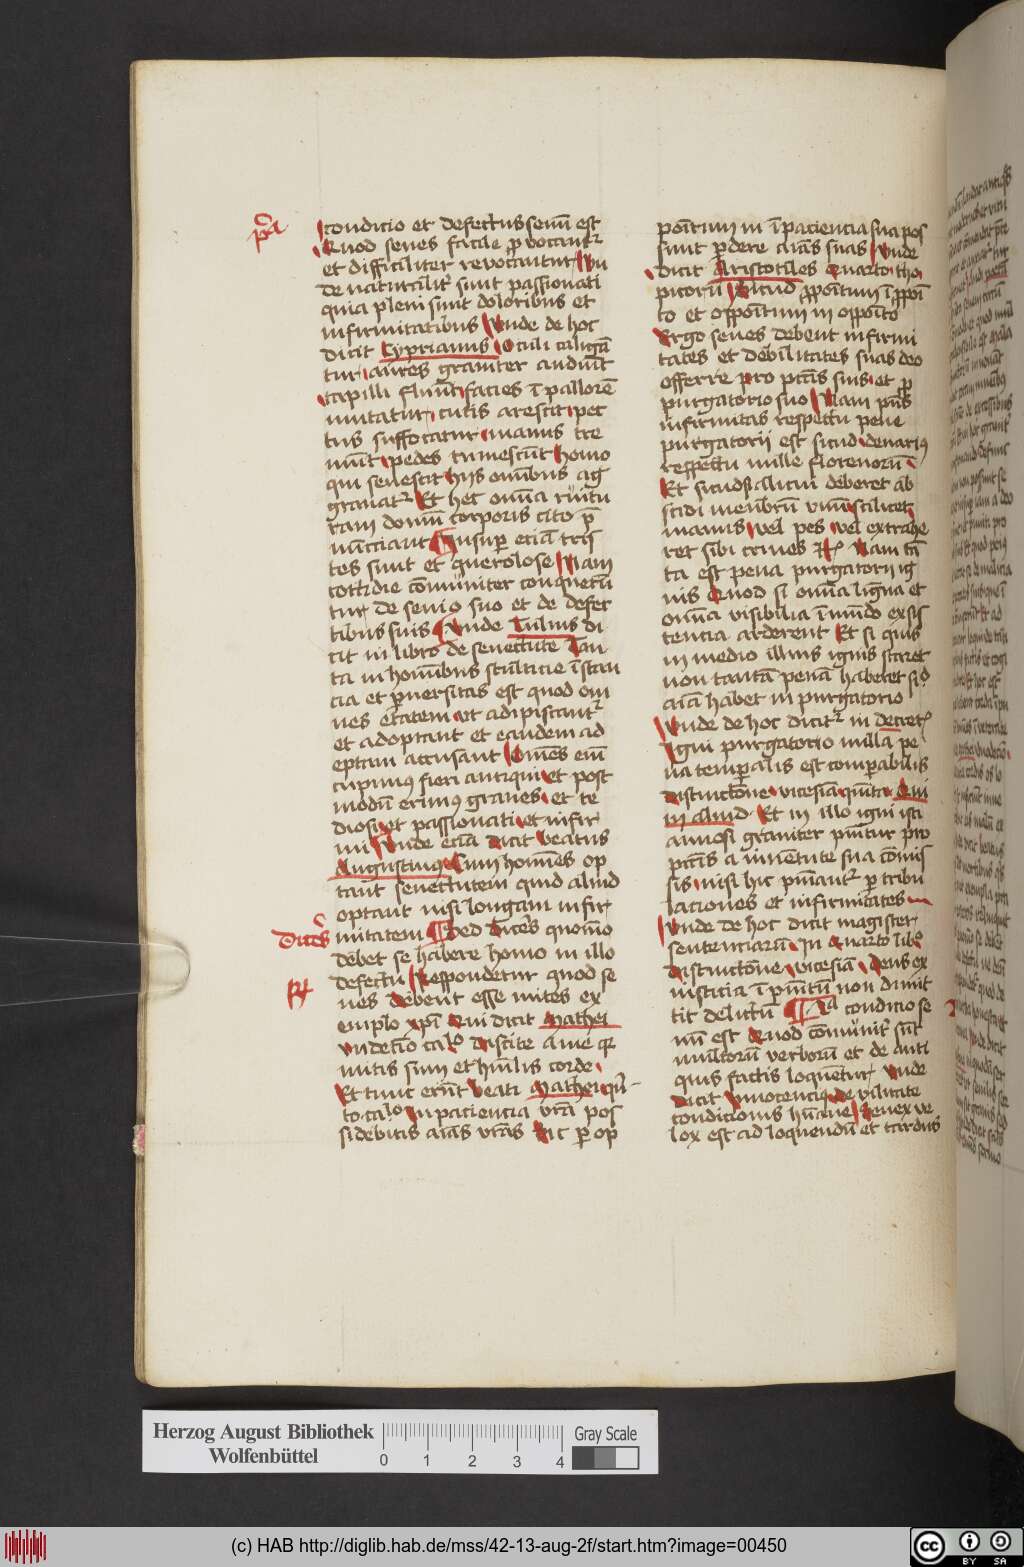 p͞a
condicio et defectus senu͞ est
Quod senes facile ꝓvocant᷑
et difficiliter revocantur Un
de naturalit͛ sunt passionati
quia pleni sunt doloribus et
infirmitatibus Unde de hoc
dicit Cyprianus Oculi caliga͞
tur aures graviter audiu͞t
capilli fluu͞t facies i͞ pallore͞
mutatur cutis arescit pec
tus suffocatur manus tre
mu͞t pedes tumescu͞t homo
qui senescit hijs omnibus ag
gravat᷑ Et hec omnia ruitu
ram domu͞ corporis cito p͞
nu͞cciant Insuꝑ etia͞ tris
tes sunt et querolose Nam
cottidie co͞muniter conqueru͞
tur de senio suo et de defec
tibus suis Unde Tulius di
cit in libro de senectute Tan
ta in hominibus stulticie i͞stan
cia et ꝑversitas est quod om
nes etatem ut adipiscant᷑
et adoptant et eandem ad
eptam accusant Omnes eni͞
cupimꝰ fieri antiqui et post
modu͞ erimꝰ graves et te
diosi et passionati et infir
mi Unde etia͞ dicit beatus
Augustinus Cum homines op
tant senectutem quid aliud
optant nisi longam infir
Dice͛s
mitatem Sed dice͛s quomo͞
debet se habere homo in illo
Rʼ
defectu Respondetur quod se
nes debent esse mites ex
emplo xp͞i Qui dicit Mathei
undeci͞o cal͞o Discite a me qꝛ
mitis sum et hu͞ilis corde
Et tunc eru͞t beati Mathei qui͞
to cal͞o In paciencia v͞ra pos
sidebitis ai͞as v͞ras Sic ꝑ op
po͞itum in i͞paciencia sua pos
sunt ꝑdere ai͞as suas Unde
dicit Aristotiles Quarto tho
picoru͞ Sicud ꝓpo͞itum i͞ ꝓpo͞i
to et oppo͞itum in oppo͞ito
Ergo senes debent infirmi
tates et debilitates suas deo
offerre pro pct͞is suis et ꝑ
purgatorio suo Nam pn͞s
infirmitas respectu pene
purgatorii est sicud denariꝰ
respectu mille florenoru͞
Et sicud si alicui deberet ab
scidi membru͞ unu͞ scilicet
manus vel pes vel extrahe
ret sibi crines Nam ta͞
ta est pena purgatorii ig
nis Quod si omnia ligna et
omnia visibilia i͞ mu͞do exsis
tencia arderent Et si quis
in medio illius ignis staret
non tanta͞ pena͞ haberet sicud
ai͞a habet in purgatorio
Unde de hoc dicit᷑ in decret͛
Igni purgatorio nulla pe
na temꝑalis est comꝑabilis
distinctione vicesia͞ quinta Qui
in aliud Et in illo igni isti
annosi graviter pu͞iu͞tur pro
pct͞is a iuventute sua co͞mis
sis nisi hic pu͞iant᷑ ꝑ tribu
laciones et infirmitates
Unde de hoc dicit magister
sentenciaru͞ In Quarto libro
distinctione vicesia͞ Deus ex
iusticia i͞pu͞itu͞ non dimit
tit delictu͞ condicio se
nu͞ est Quod co͞munit͛ su͞t
multoru͞ verboru͞ et de anti
quis factis loquentur Unde
dicit Innocenciꝰ de vilitate
condicionis hu͞ane Senex ve
lox est ad loquendu͞ et tardus
Herzog August Bibliothek
Wolfenbüttel
0 1 2 3 4
Gray Scale
(c) HAB http://diglib.hab.de/mss/42-13-aug-2f/start.htm?image=00450
cc BY SA